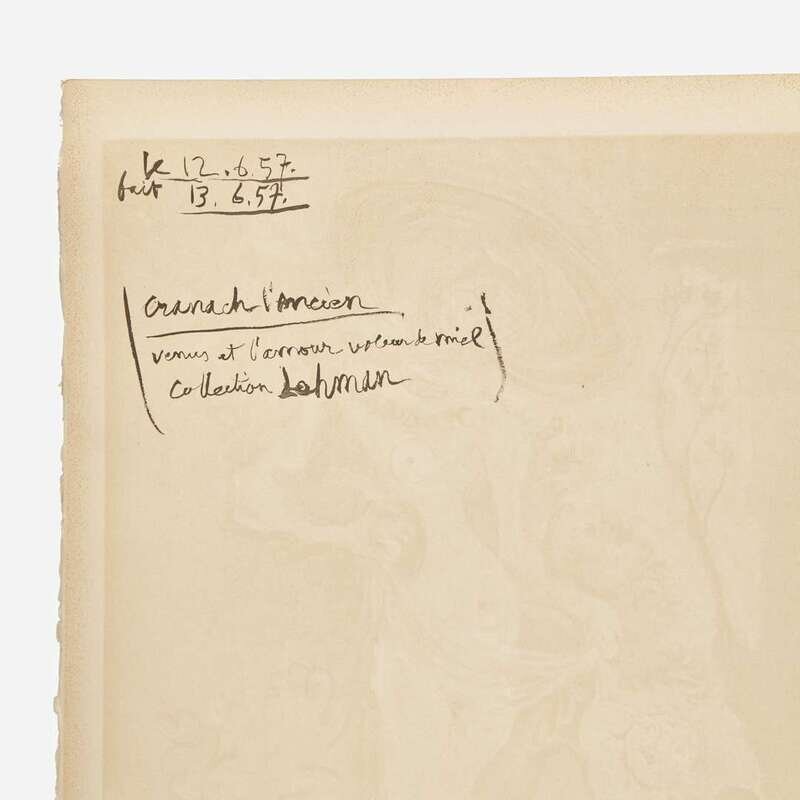 le 12.6.57.
fait 13.6.57.
(cranach l'ancien
venus et l'amour voleur de miel
collection Lehman)